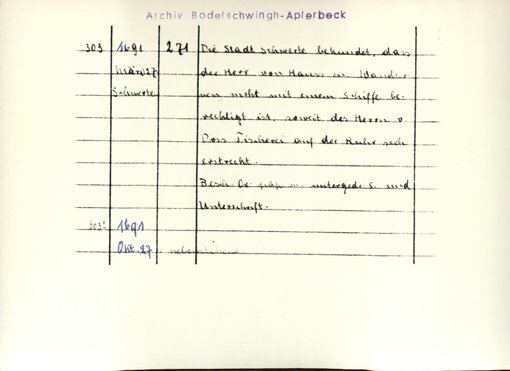 Archiv Bodelschwingh-Aplerbeck
303 1691 271 Die Stadt Schwerte bekundet, dass
März 27 der Herr von Hauss zu
Schwerte nicht mit einem Schiffe be-
rechtigt ist, soweit des Herrn v.
Fischerei auf der Ruhr sich
erstreckt.
Besch. Or. pap. untergedr. S. und
Unterschrift.
303a 1691
Okt. 27